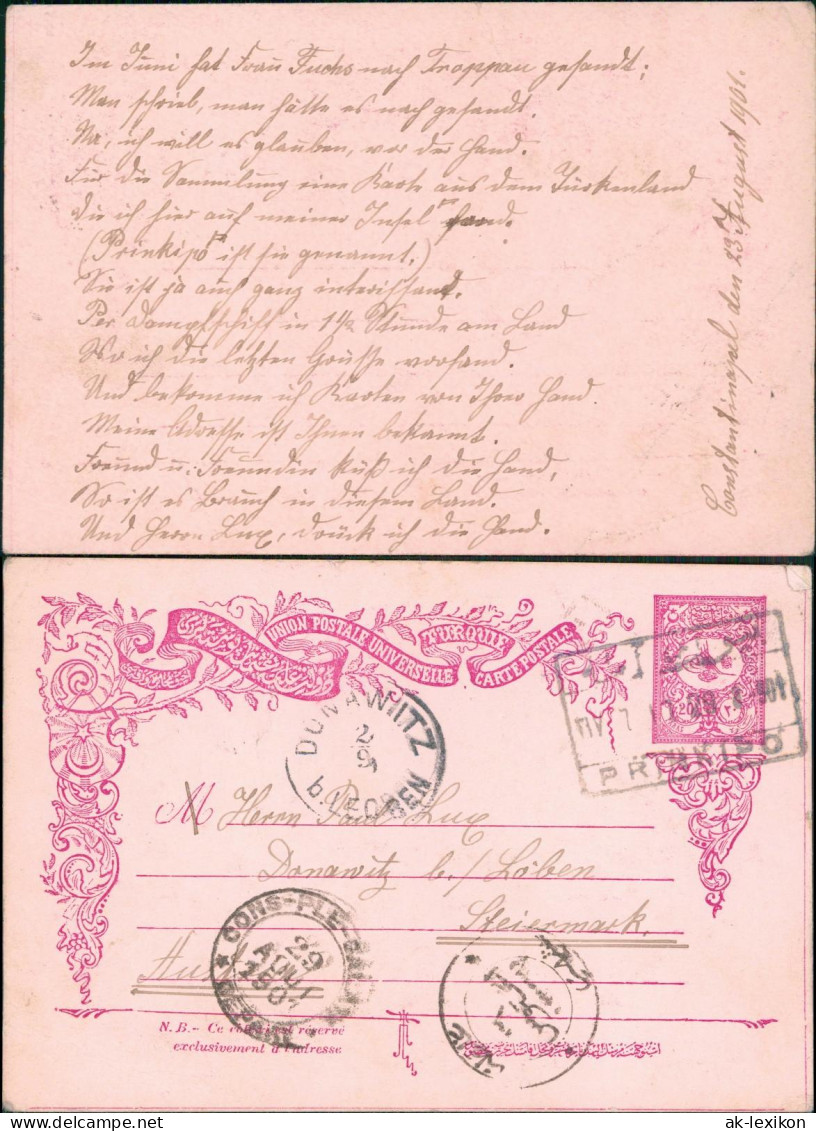 Im Juni hat Frau Fuchs nach Troppau gesandt;
Man schrieb, man hätte es nach gesandt.
Na, ich will es glauben, vor der Hand.
Für die Sammlung eine Karte aus dem Türkenland
Die ich hier auf meiner Insel fand.
(Prinkipo ist sie genannt.)
Sie ist ja auch ganz interissant.
Per Dampfschiff in 1½ Stunde am Land
Wo ich die letzten Grüsse vorfand.
Und bekomme ich Karten von Ihrer Hand
Meine Adresse ist Ihnen bekannt.
Freund u: Freundin küß ich die Hand,
So ist es Brauch in diesem Land.
Und Herrn Lux, drück ich die Hand.
Constantinopel den 23. August 1901.
UNION POSTALE UNIVERSELLE
TURQUIE
CARTE POSTALE
20
PRINKIPO
DONAWITZ
2/9
b. LEOBEN
M Herrn Paul Lux
Donawitz b./ Löben
Steiermark.
CONS-PLE-
29
AOUT
1901
DEPART
N.B.- Ce côté est réservé
exclusivement à l'adresse
ak-lexikon